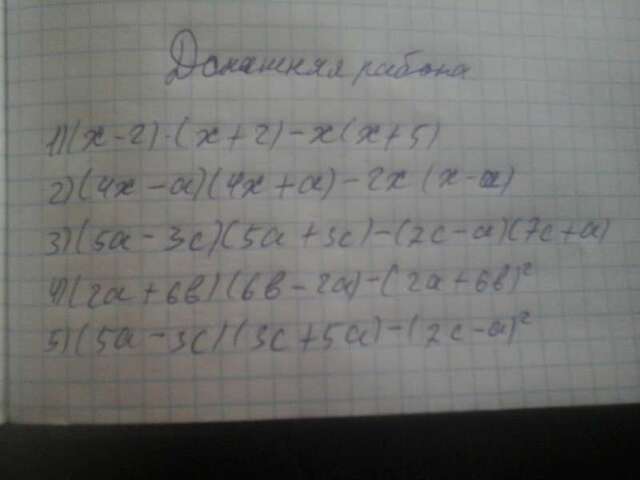 Домашняя работа
1) (x-2)·(x+2)-x(x+5)
2) (4x-a)(4x+a)-2x(x-a)
3) (5a-3c)(5a+3c)-(2c-a)(7c+a)
4) (2a+6в)(6в-2a)-(2a+6в)²
5) (5a-3c)(3c+5a)-(2c-a)²